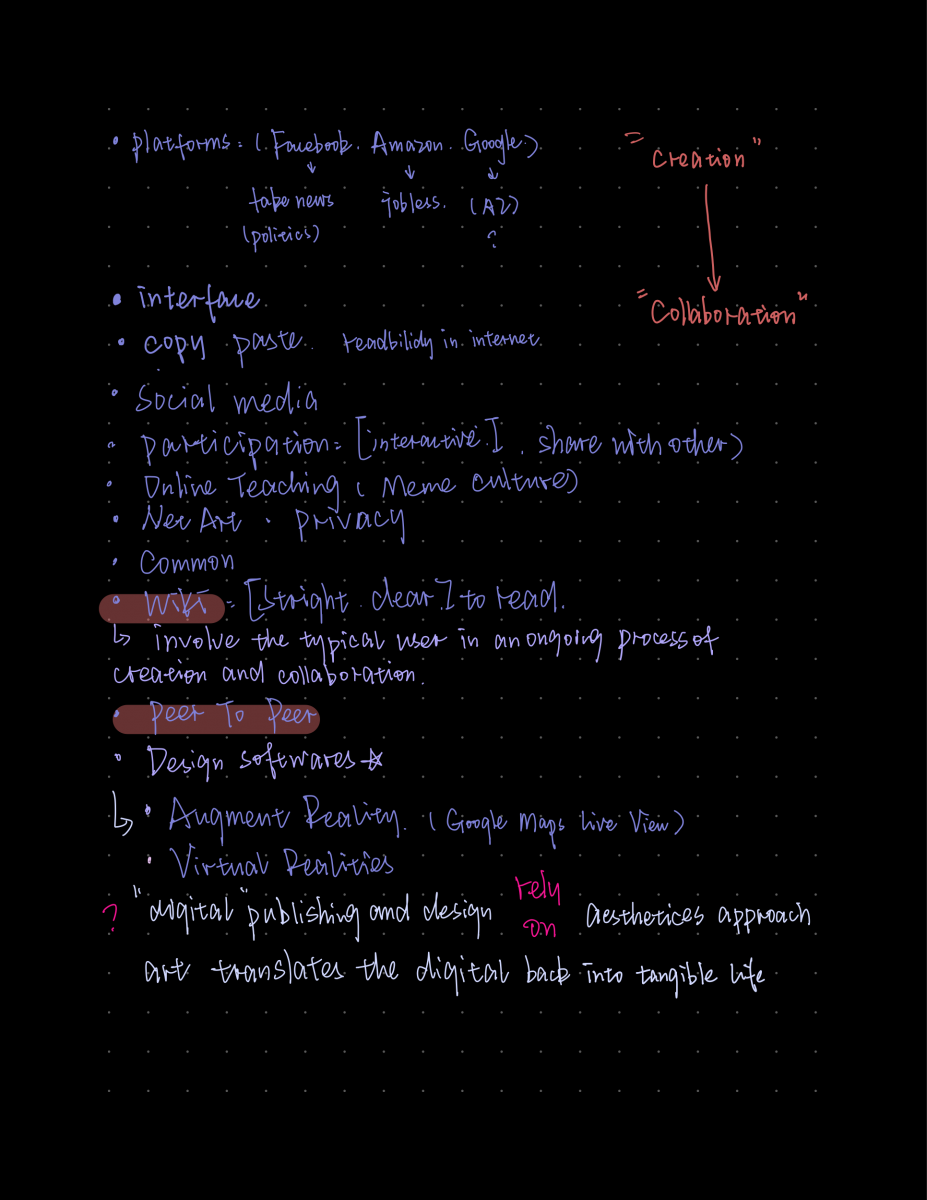 • platforms: (Facebook. Amazon. Google.)
↓ ↓ ↓
fake news jobless. (AI)
(politics) ?
"Creation"
↓
"Collaboration"
• interface.
• copy paste. readbilidy in internet.
• Social media
• participation= [interactive]. share with other)
• Online Teaching ( Meme culture)
• Net Art • privacy
• Common
• Wiki = [stright. clear] to read.
↳ involve the typical user in an ongoing process of
creation and collaboration.
• Peer To Peer
• Design softwares ☆
↳ • Augment Reality. (Google Maps Live View)
• Virtual Realities
? "digital" publishing and design rely on aesthetices approach
art translates the digital back into tangible life